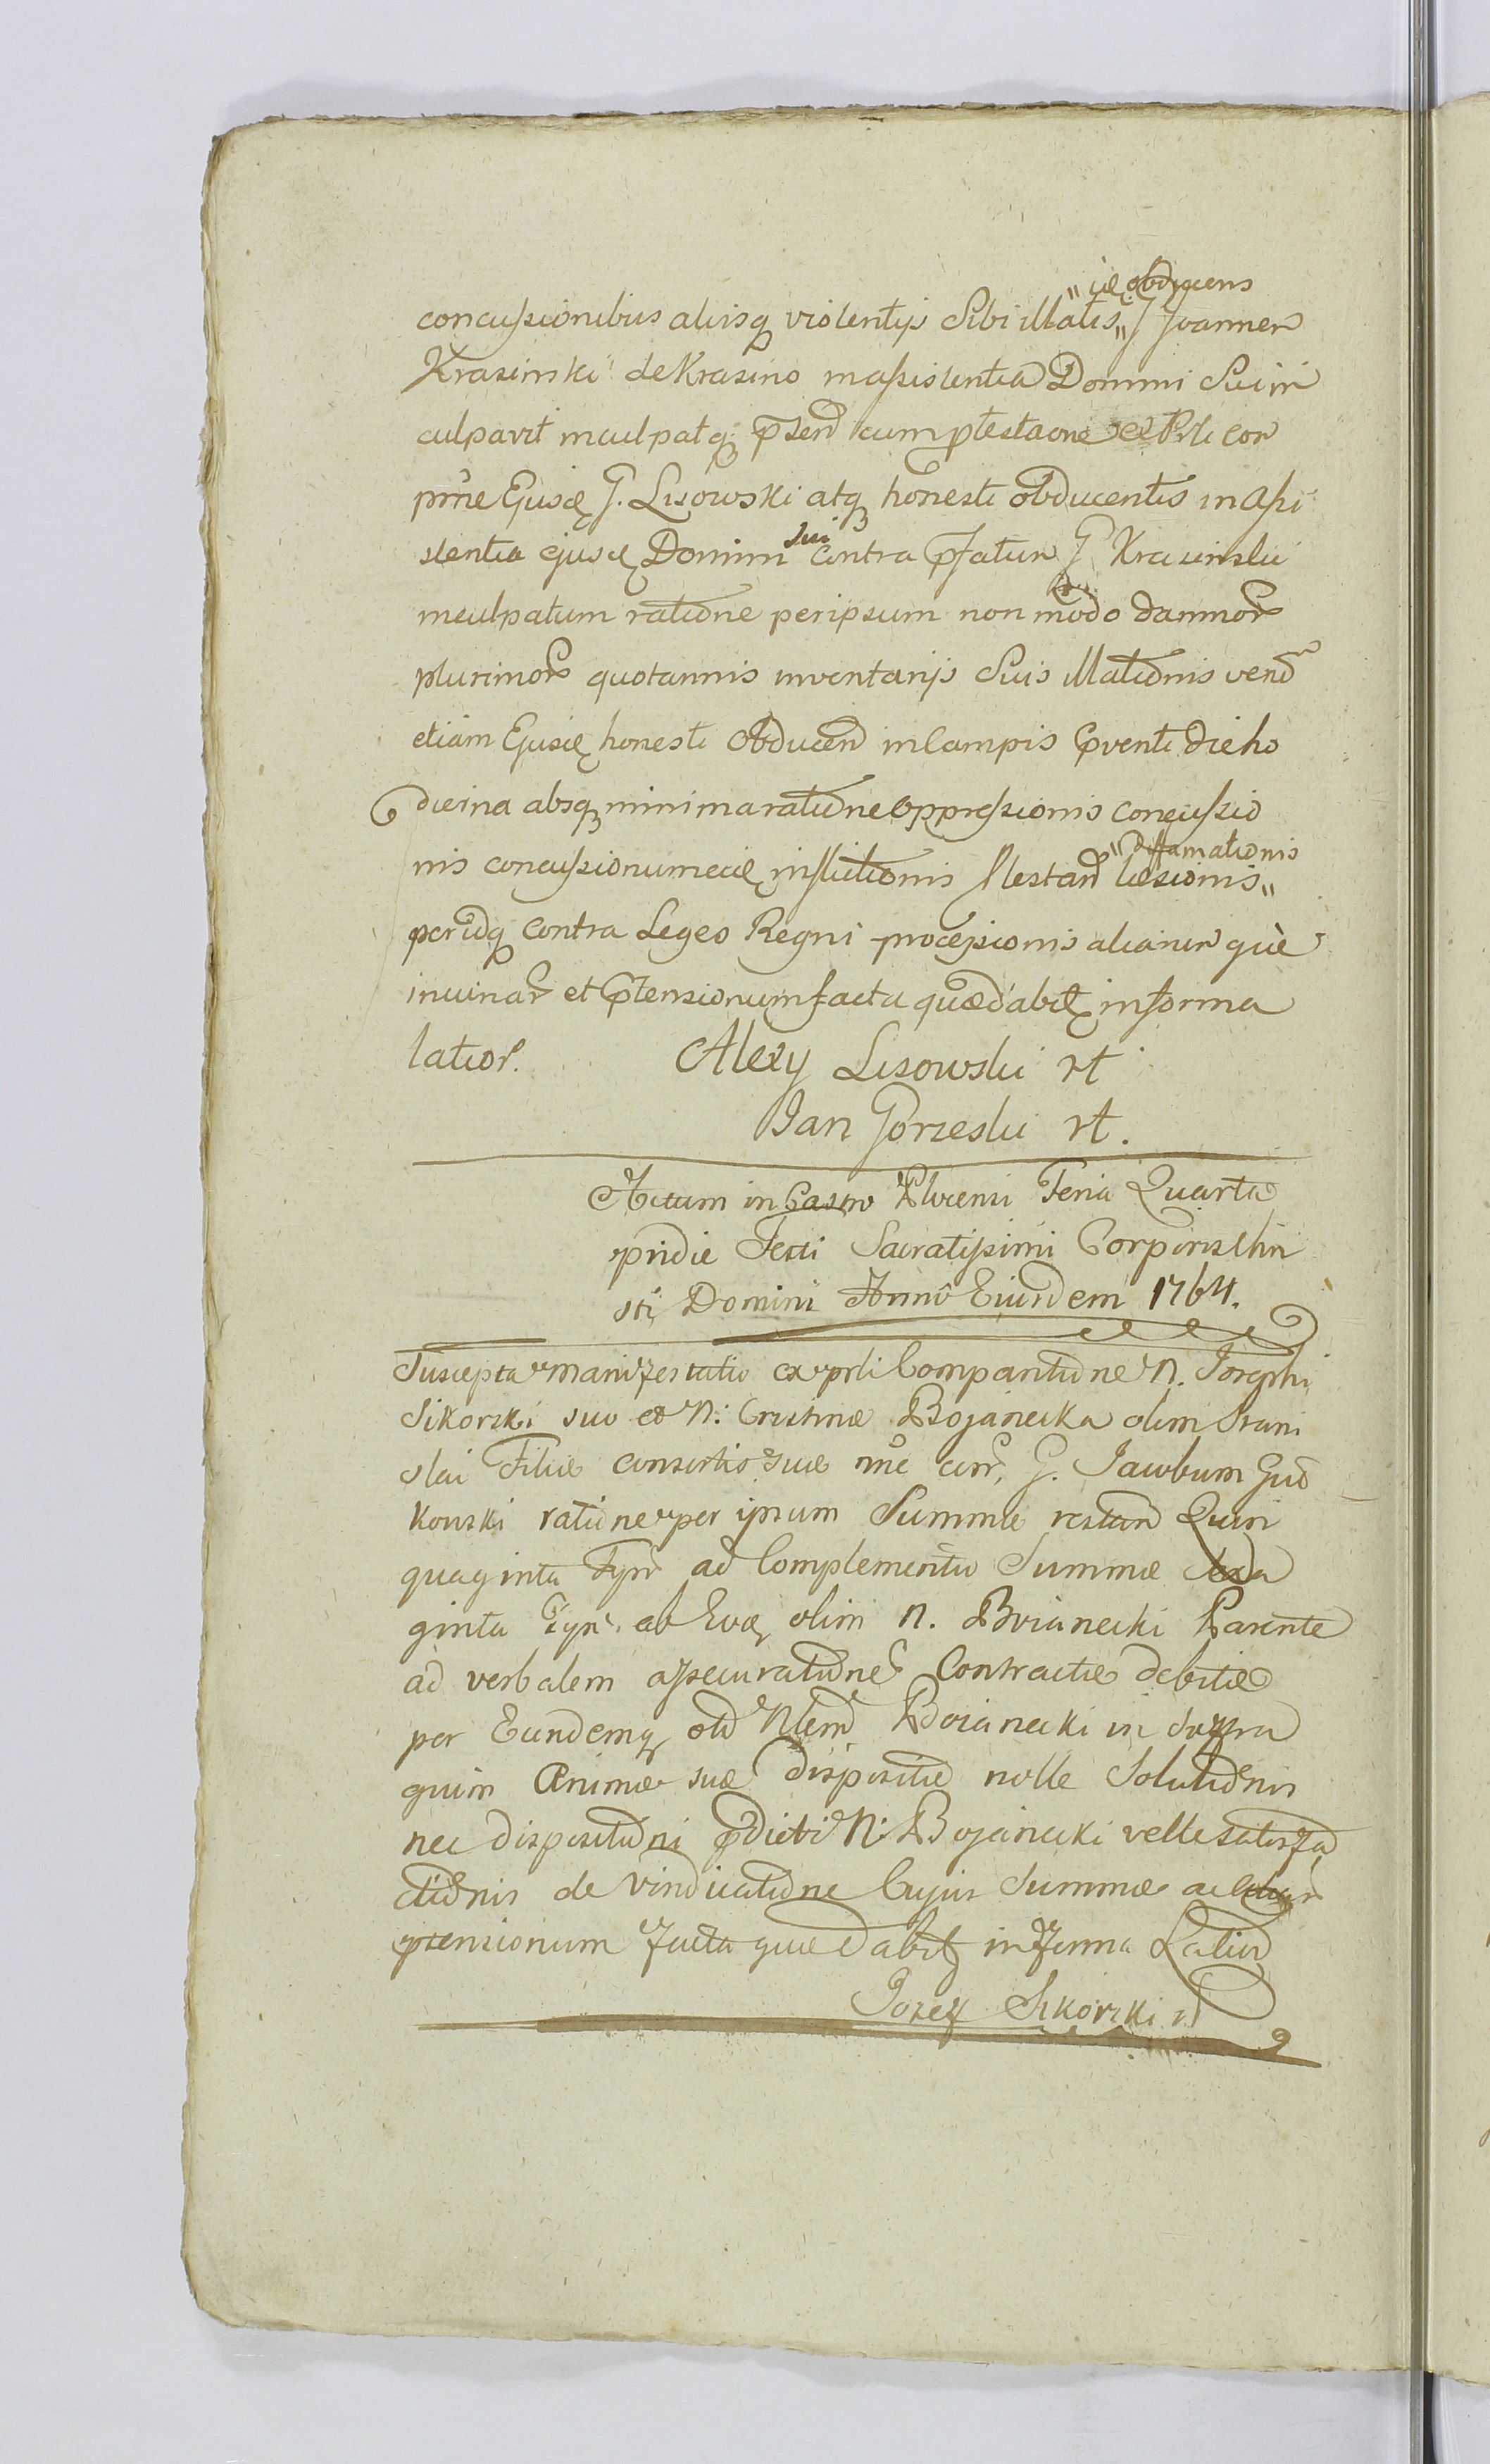 idę obducens
concussionibus aliisq violentijs Sibi illatis G Joannem
Krasinski de Krasino in assistentia Domini Sui in
culpavit inculpatq pnsend cum protestaone ex Prli com
pnne Ejusdę G. Lisowski atq honesti obducentis in assi
stentia ejusdę Domini sui contra pfatum G Krasinski
inculpatum ratione per ipsum non modo damnor
plurimor quotannis inventarijs Suis illationis verum
etiam Ejusdę honesti Obducen in Campis pventi die ho
dierna absq minima ratione oppressionis concussio
nis concussionum inflictionis læsionis
diffamationis
per idq contra Leges Regni processionis aliarumque
iniuriar et ptensionum facta quæ dabit in forma
latior.
Alexy Lisowski rt
Jan Gorzeski rt.
Actum in Castro Plocensi Feria Quarta
pridie Festi Sacratissimi Corporis Chri
sti Domini Anno Eiusdem 1764.
Suscepta Manifestatio ex prli Comparitione N. Josephi
Sikorski suo et N. Cristinæ Bojanecka olim Stani
slai Filiæ consortis suæ nne con G. Jacobum Gud
kowski ratione per ipsum Summæ restan Quin
quaginta Tyn ad Complementu Summæ Sexa
ginta Tyn. ab olim N. Boianecki Parente
ad verbalem assecurationē Contractæ debitæ
per Eundemq old Boianecki in suffra
guim Animæ suæ dispositæ nolle Solutionis
nec dispositioni pdicti N. Bojanecki velle satisfa
ctionis de Vindicatione Cujus Summæ ac aliar
ptensionum facta quæ dabit in forma Latior
Jozef Sikorski rt